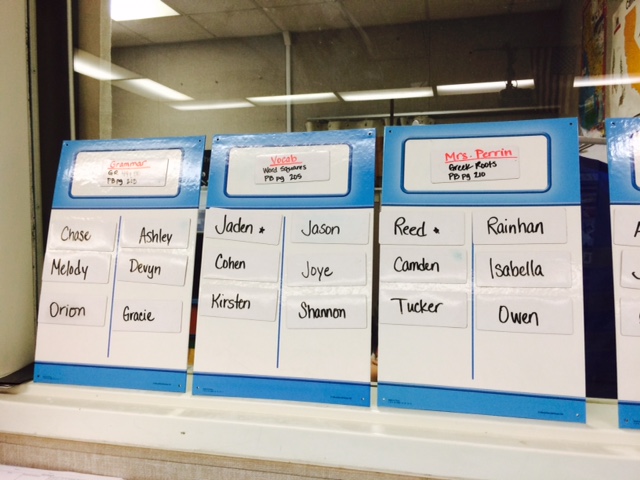 Grammar
PB pg 215
Chase
Ashley
Melody
Devyn
Orion
Gracie
Vocab
Word Squares
PB pg 205
Jaden *
Jason
Cohen
Joye
Kirsten
Shannon
Mrs. Perrin
Greek Roots
PB pg 210
Reed *
Rainhan
Camden
Isabella
Tucker
Owen